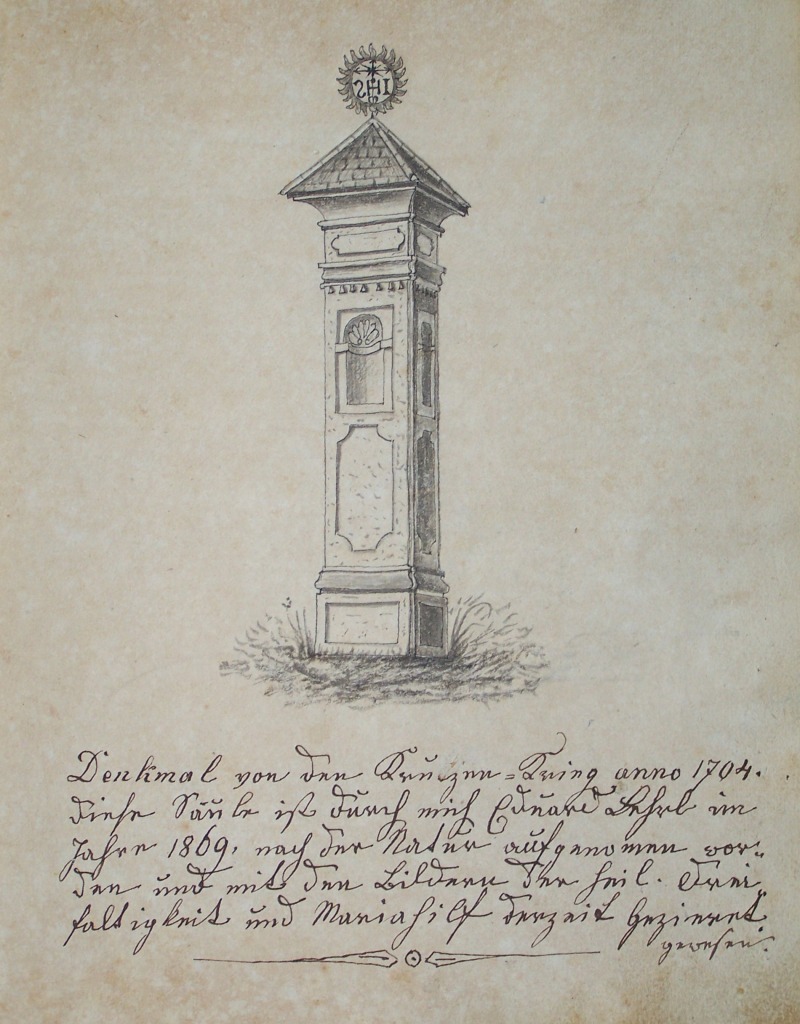 IHS
Denkmal von den Kruczen=Krieg anno 1704.
Diese Säule ist durch mich Eduard im
Jahre 1869, nach der Natur aufgenomen wor„
den und mit den Bildern der heil. Drei„
faltigkeit und Mariahilf derzeit gezieret
gewesen.